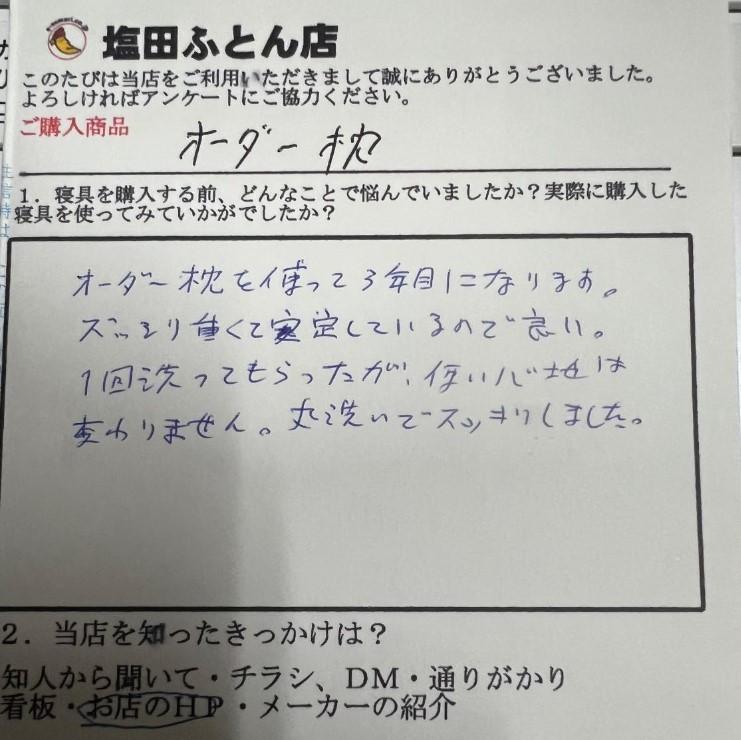 塩田ふとん店
このたびは当店をご利用いただきまして誠にありがとうございました。
よろしければアンケートにご協力ください。
ご購入商品
オーダー枕
1．寝具を購入する前、どんなことで悩んでいましたか？実際に購入した
寝具を使ってみていかがでしたか？
オーダー枕を使って3年目になります。
ズッシリ重くて安定しているので良い。
1回洗ってもらったが、使い心地は
変わりません。丸洗いでスッキリしました。
2．当店を知ったきっかけは？
知人から聞いて・チラシ、DM・通りがかり
看板・お店のHP・メーカーの紹介